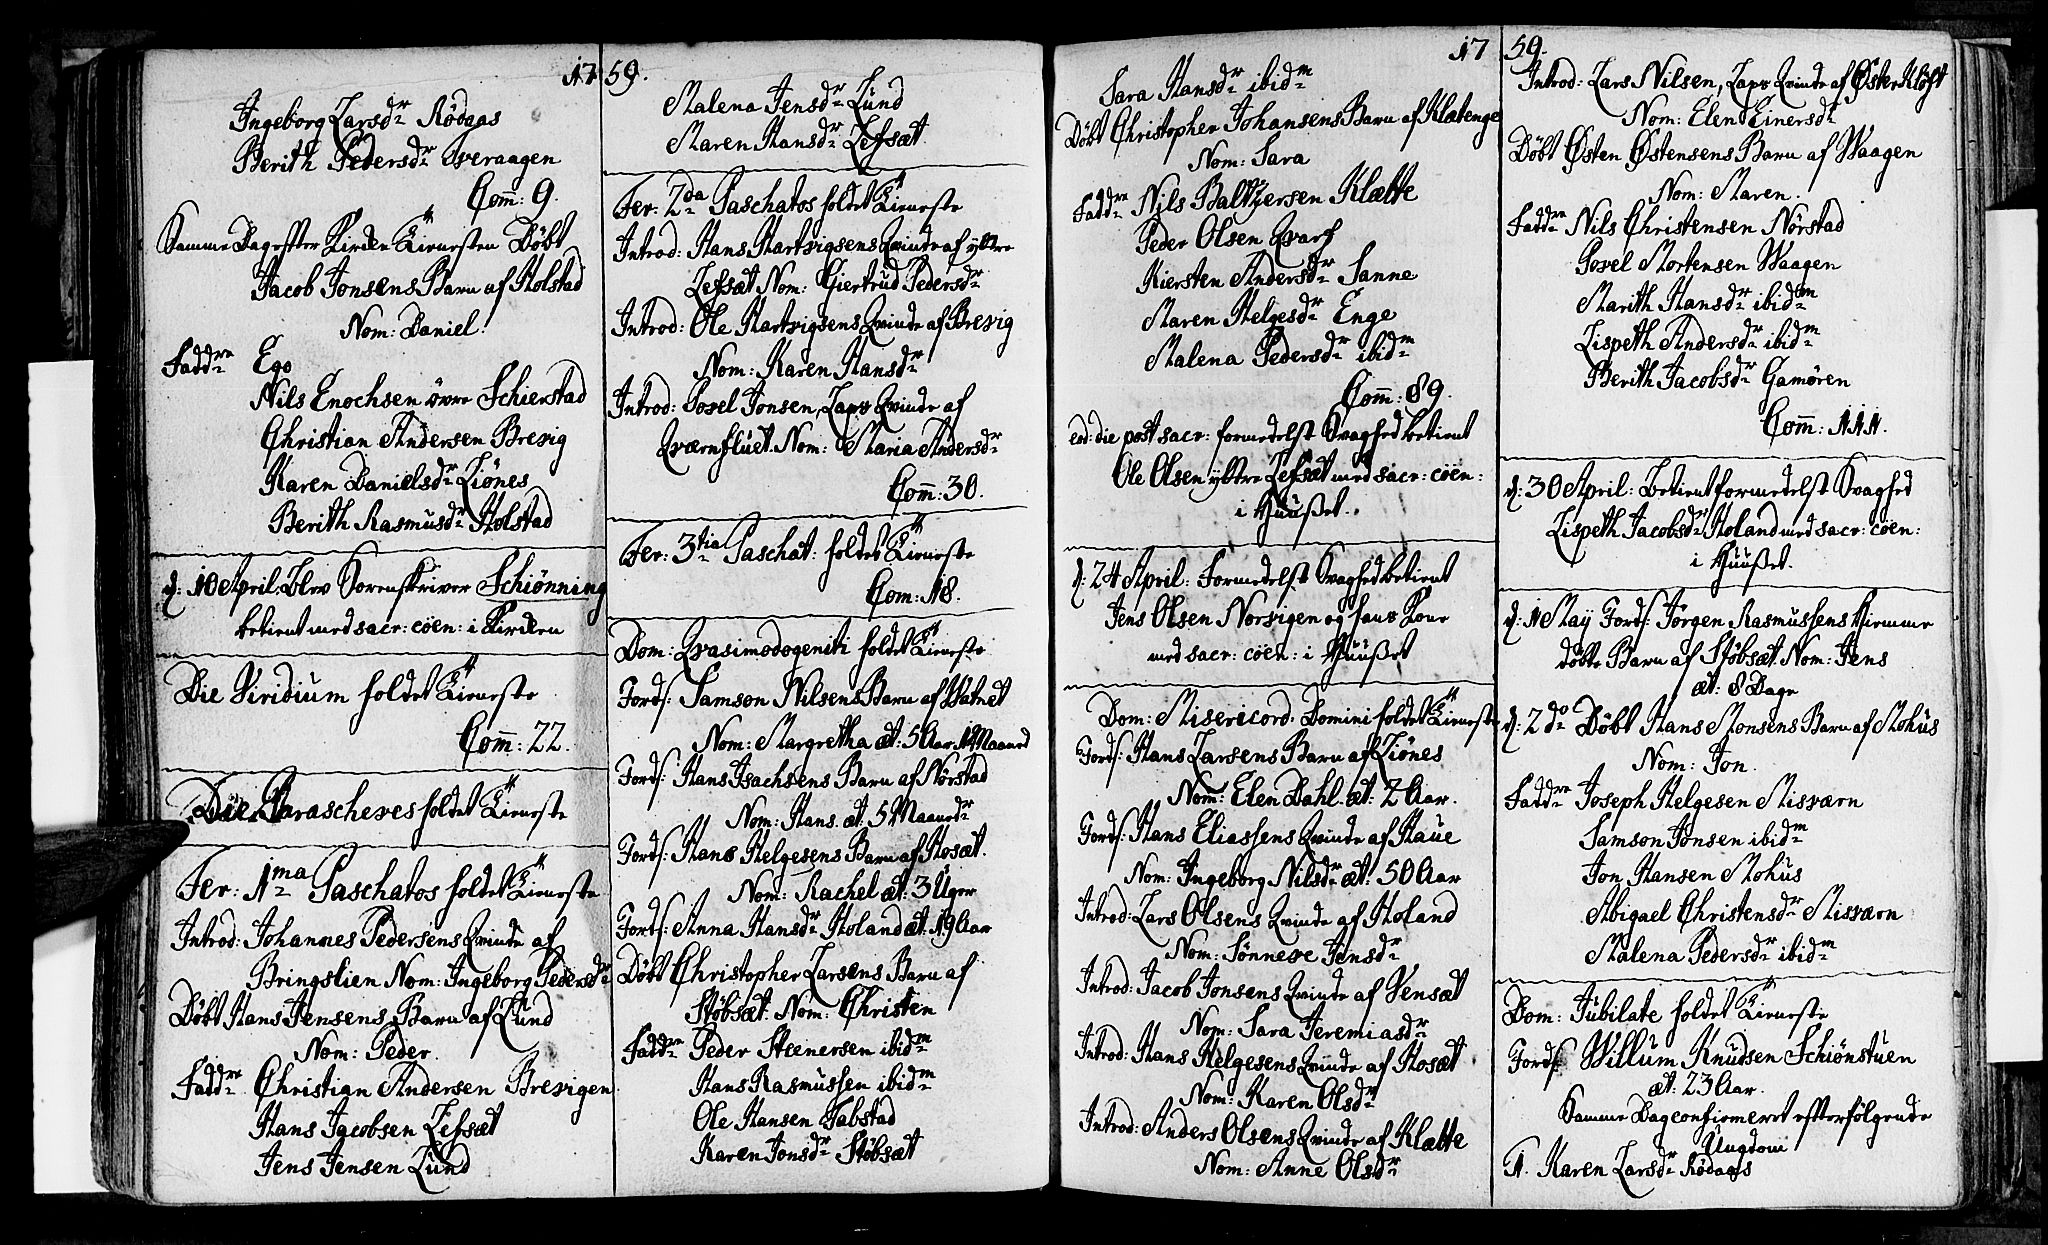 1759.
Ingeborg Larsdr Rödaas
Berith Pedersdr Sveraagen
Com̄: 9.
Samme Dag efter Kirche Tienesten Döbt
Jacob Jonsens Barn af Holstad
Nom: Daniel.
Faddre Ego
Nils Enochsen övre Schierstad
Christian Andersen Brevig
Karen Danielsdr Liönes
Berith Rasmusdr Holstad
d: 10 April. blev Sorenskriver Schiönning
betient med sacr: cöen: i Kirchen
Die Viridium holdet Tieneste
Com̄: 22.
Die Parascheves holdet Tieneste
Fer: 1ma Paschatos holdet Tieneste
Introd: Johannes Pedersens Qvinde af
Bringslien Nom: Ingeborg Pedersdr
Döbt Hans Jensens Barn af Lund
Nom: Peder.
Faddre Christian Andersen Brevigen
Hans Jacobsen Lefsæt
Jens Jensen Lund
Malena Jensdr Lund
Maren Hansdr Lefsæt.
Fer: 2da Paschatos holdet Tieneste
Introd: Hans Hartvigsens Qvinde af yttre
Lefsæt Nom: Giertrud Pedersdr
Introd: Ole Hartvigsens Qvinde af Brevig
Nom: Karen Hansdr
Introd: Povel Jonsen, Laps Qvinde af
Qværnfluet. Nom: Maria Andersdr
Com̄: 30.
Fer: 3tia Paschat: holdet Tieneste
Com: 18.
Dom: Qvasimodogeniti holdet Tieneste
Fords: Samson Nilsens Barn af Watnet
Nom: Margretha æt: 5 Aar 1 Maaned
Fords: Hans Isachsens Barn af Nörstad
Nom: Hans. æt: 5 Maaneder
Fords: Hans Helgesens Barn af Hosæt.
Nom: Rachel æt: 3 Uger
Fords: Anna Hansdr Holand æt: 19 Aar
Döbt Christopher Larsens Barn af
Stöbsæt. Nom: Christen
Faddre Peder Steenersen ibidm
Hans Rasmussen ibidm
Ole Hansen Tabstad
Karen Jonsdr Stöbsæt
1759.
Sara Hansdr ibidm
Döbt Christopher Johansens Barn af Klætenge
Nom: Sara
Faddre Nils Baltzersen Klætte
Peder Olsen Qvarf
Kiersten Andersdr Sanne
Maren Helgesdr Enge
Malena Pedersdr ibidm
Com̄: 89.
eod: die post sacr: formedelst Svaghed betient
Ole Olsen yttre Lefsæt med sacr: cöen:
i Huuset.
d: 24 April: Formedelst Svaghed betient
Jens Olsen Norvigen og hans Kone
med sacr: cöen: i Huuset
Dom: Misericord: Domini holdet Tieneste
Fords: Hans Larsens Barn af Liönes
Nom: Elen Dahl. æt: 2 Aar.
Fords: Hans Eliassens Qvinde af Haue
Nom: Ingeborg Nilsdr æt: 50 Aar
Introd: Lars Olsens Qvinde af Holand
Nom: Sönneve Jensdr
Introd: Jacob Jonsens Qvinde af Vensæt
Nom: Sara Jeremiasdr
Introd: Hans Helgesens Qvinde af Hosæt
Nom: Karen Olsdr
Introd: Anders Olsens Qvinde af Klætte
Nom: Anne Olsdr
Introd: Lars Nilsen, Laps Qvinde af Øster Klöft
Nom: Elen Einersdr
Döbt Østen Østensens Barn af Waagen
Nom: Maren.
Faddre Nils Christensen Nörstad
Povel Mortensen Waagen
Marith Hansdr ibidm
Lispeth Andersdr ibidm
Berith Jacobsdr Gamören
Com̄: 111.
d: 30 April: betient formedelst Svaghed
Lispeth Jacobsdr Holand med sacr: cöen:
i Huuset.
d: 1 May Fords: Jörgen Rasmussens hiemme
döbte Barn af Stöbsæt. Nom: Jens
æt: 8 Dage
d: 2do Döbt Hans Monsens Barn af Mohus
Nom: Jon.
Faddre Joseph Helgesen Misværn
Samson Jonsen ibidm
Jon Hansen Mohus
Abigael Christensdr Misværn
Malena Pedersdr ibidm
Dom: Jubilate holdet Tieneste
Fords Willum Knudsen Schiönstuen
æt: 23 Aar.
Samme Dag confirmeret efterfölgende
Ungdom
1. Karen Larsdr Rödaas